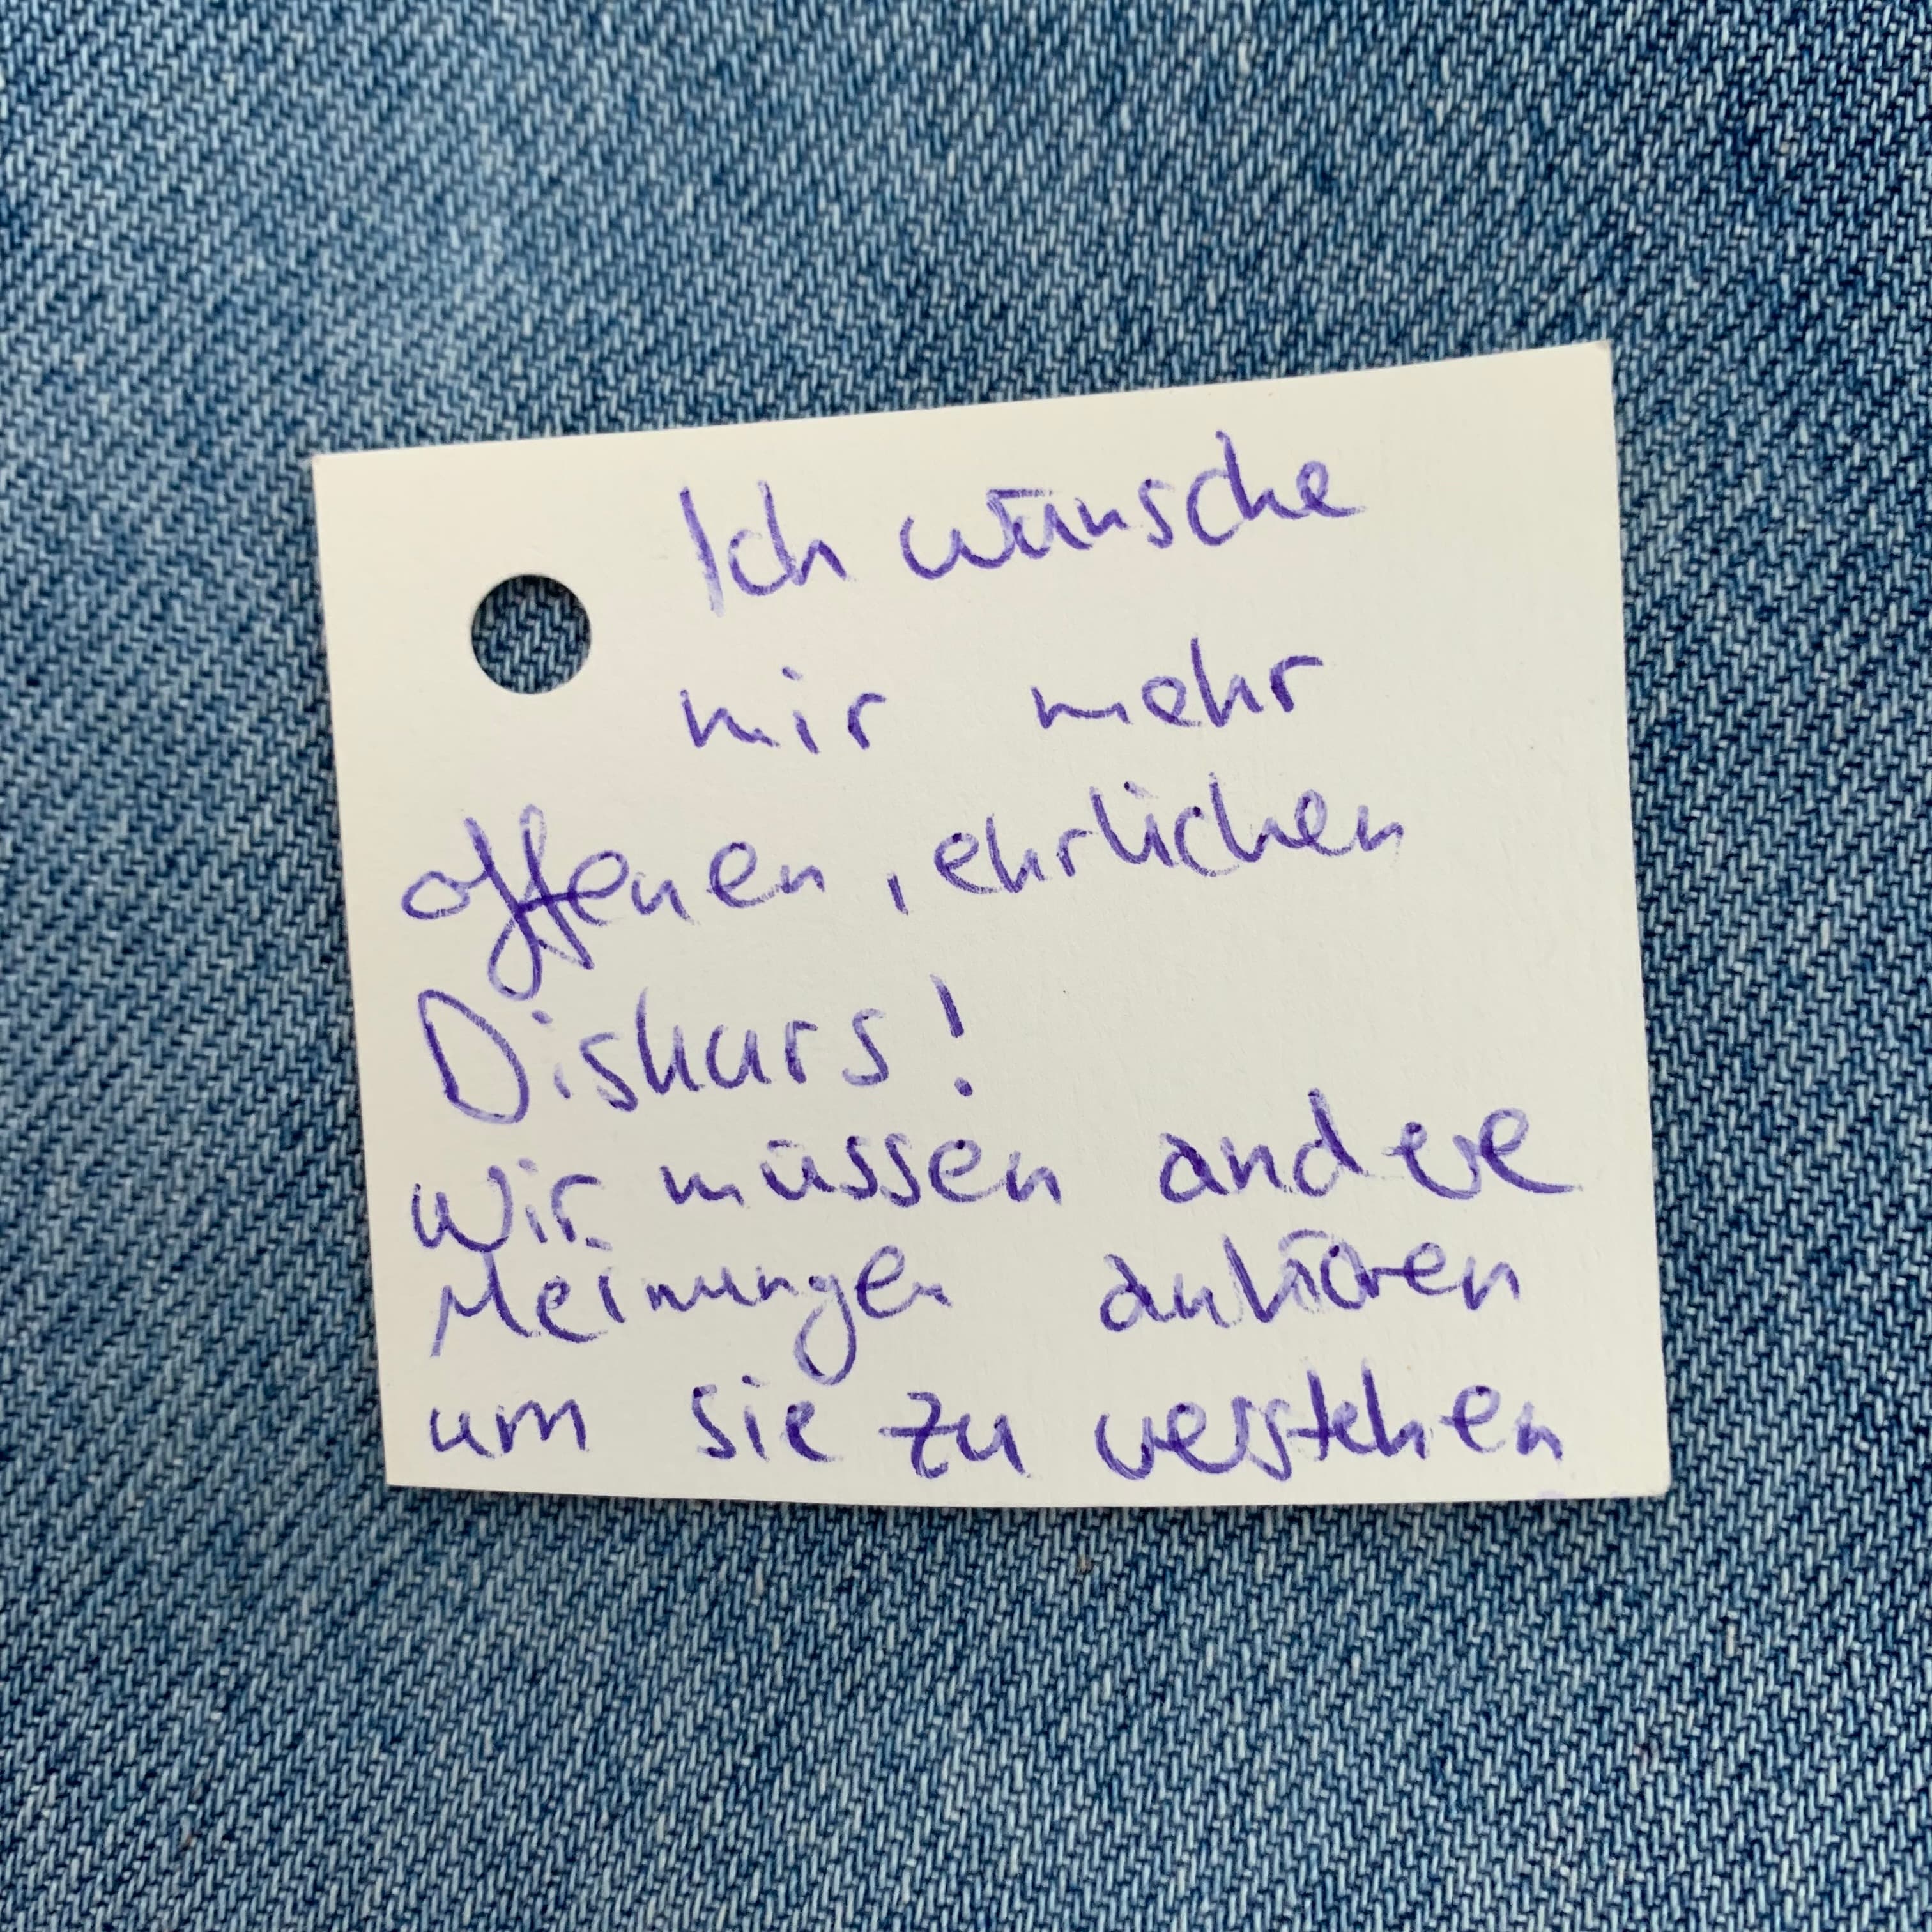 Ich wünsche
mir mehr
offenen, ehrlichen
Diskurs!
Wir müssen andere
Meinungen anhören
um sie zu verstehen